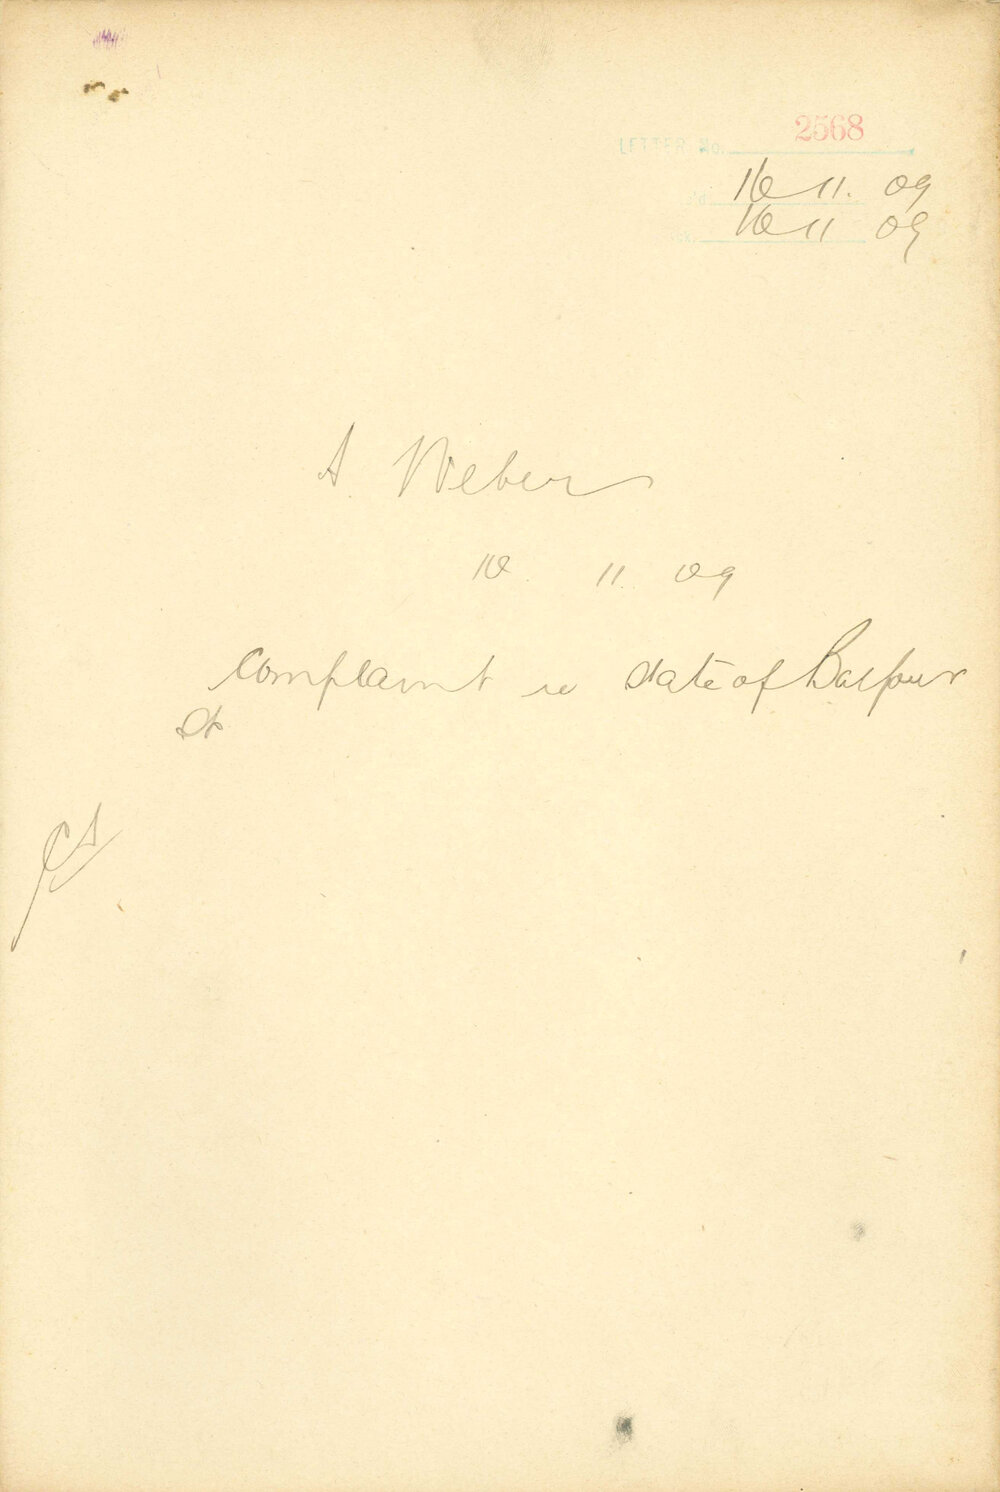 LETTER No. 2568
16 11. 09
16 11 09
A. Weber
10. 11. 09
Complaint re state of Balfour
St